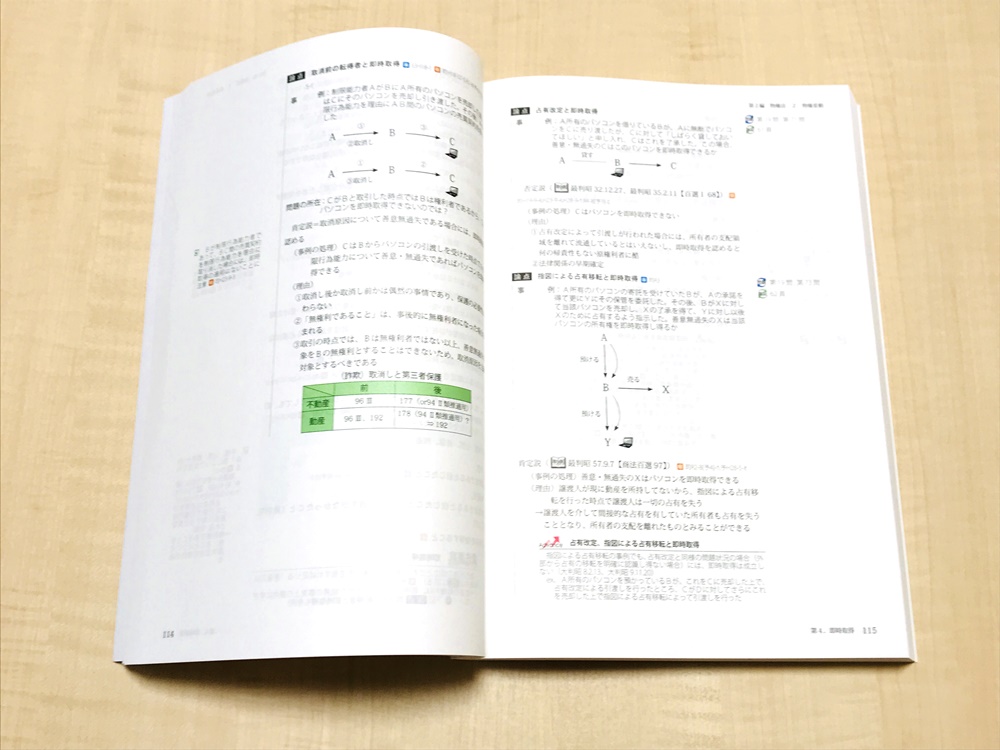 論点 取消前の転得者と即時取得
事 例：制限能力者AがBにA所有のパソコンを売却
はCにそのパソコンを売却し引き渡した。その後
限行為能力を理由にAB間のパソコンの売買
した
① ③
A B C
②取消し
① ②
A B C
③取消し
問題の所在：CがBと取引した時点ではBは権利者であるから、
パソコンを即時取得できないのでは？
肯定説＝取消原因について善意無過失である場合には、即時
認める
（事例の処理）CはBからパソコンの引渡しを受けた時点で
限行為能力について善意・無過失であればパソコン
得できる
（理由）
①取消し後か取消し前かは偶然の事情であり、保護の必要
わらない
②「無権利であること」は、事後的に無権利者になった場
まれる
③取引の時点では、Bは無権利者ではない以上、善意無過
象をBの無権利とすることはできないため、取消原因
対象とするべきである
（詐欺）取消しと第三者保護
前 後
不動産 96Ⅲ 177（or94Ⅱ類推適用）
動産 96Ⅲ、192 178（94Ⅱ類推適用）？
⇒192
114
論点 占有改定と即時取得
事 例：A所有のパソコンを借りているBが、Aに無断でパソコ
ンをCに売り渡したが、Cに対して「しばらく貸してお
てほしい」と申し入れ、Cはこれを了承した。この場合
善意・無過失のCはこのパソコンを即時取得できるか
貸す
A B C
否定説（判例 最判昭32.12.27、最判昭35.2.11【百選Ⅰ68】）
（事例の処理）Cはパソコンを即時取得できない
（理由）
①占有改定によって引渡しが行われた場合には、所有者の支配領
域を離れて流通しているとはいえないし、即時取得を認めると
何の帰責性もない原権利者に酷
②法律関係の早期確定
論点 指図による占有移転と即時取得
事 例：A所有のパソコンの寄託を受けていたBが、Aの承諾を
得て更にYにその保管を委託した。その後、BがXに対し
て当該パソコンを売却し、Xの了承を得て、Yに対し以後
Xのために占有するよう指示した。善意無過失のXは当該
パソコンの所有権を即時取得し得るか
A
預ける
B 売る X
預ける
Y
肯定説（判例 最判昭57.9.7【商法百選97】）
（事例の処理）善意・無過失のXはパソコンを即時取得できる
（理由）譲渡人が現に動産を所持してないから、指図による占有移
転を行った時点で譲渡人は一切の占有を失う
→譲渡人を介して間接的な占有を有していた所有者も占有を失う
こととなり、所有者の支配を離れたものとみることができる
占有改定、指図による占有移転と即時取得
指図による占有移転の事例でも、占有改定と同様の問題状況の場合（外
部から占有の移転を明確に認識し得ない場合）には、即時取得は成立し
ない（大判昭8.2.13、大判昭9.11.20）
ex. A所有のパソコンを預かっているBが、これをCに売却した上で、
占有改定による引渡しを行ったところ、CがDに対してさらにこれ
を売却した上で指図による占有移転によって引渡しを行った
第4．即時取得 115